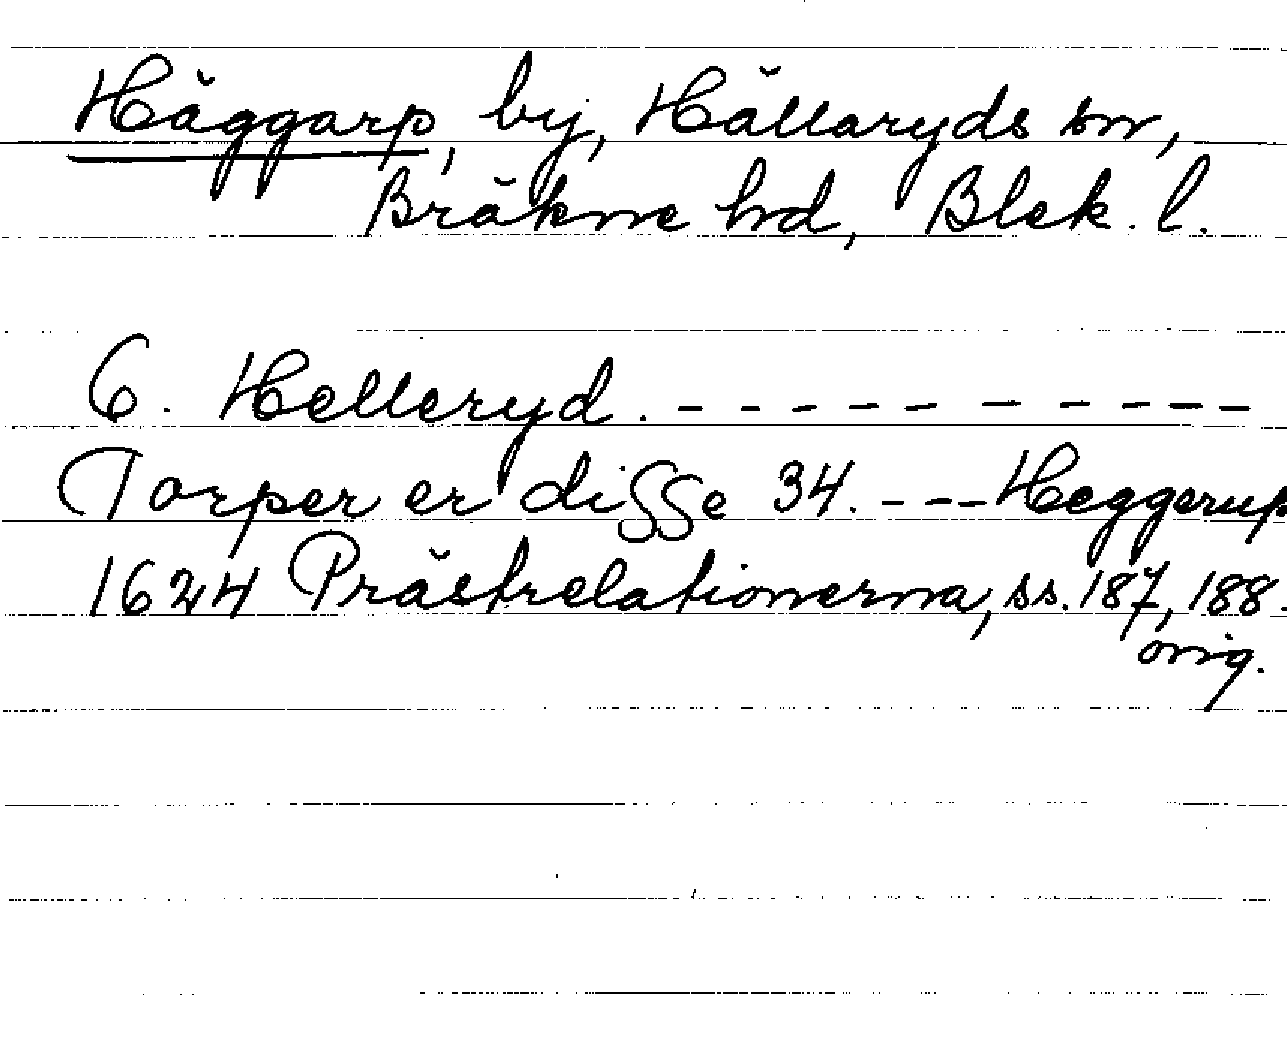 Häggarp, by, Hällaryds sn,
Bräkne hd, Blek. l.
6. Helleryd. - - - - - - - - - - -
Torper er disse 34. - - - Heggerup
1624 Prästrelationerna, ss. 187, 188.
orig.